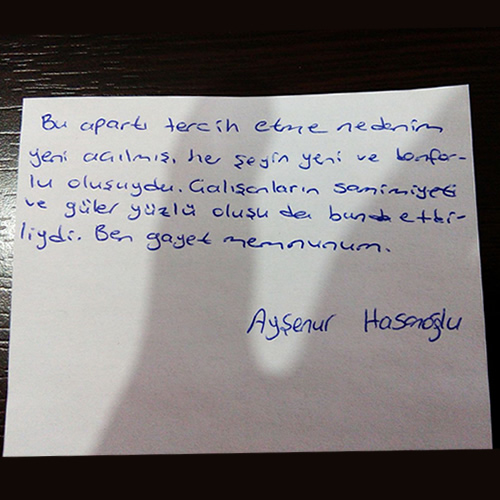 Bu apartı tercih etme nedenim
yeni açılmış, her şeyin yeni ve konfor-
lu oluşuydu. Çalışanların samimiyeti
ve güler yüzlü oluşu da bunda etki-
liydi. Ben gayet memnunum.
Ayşenur Hasanoğlu